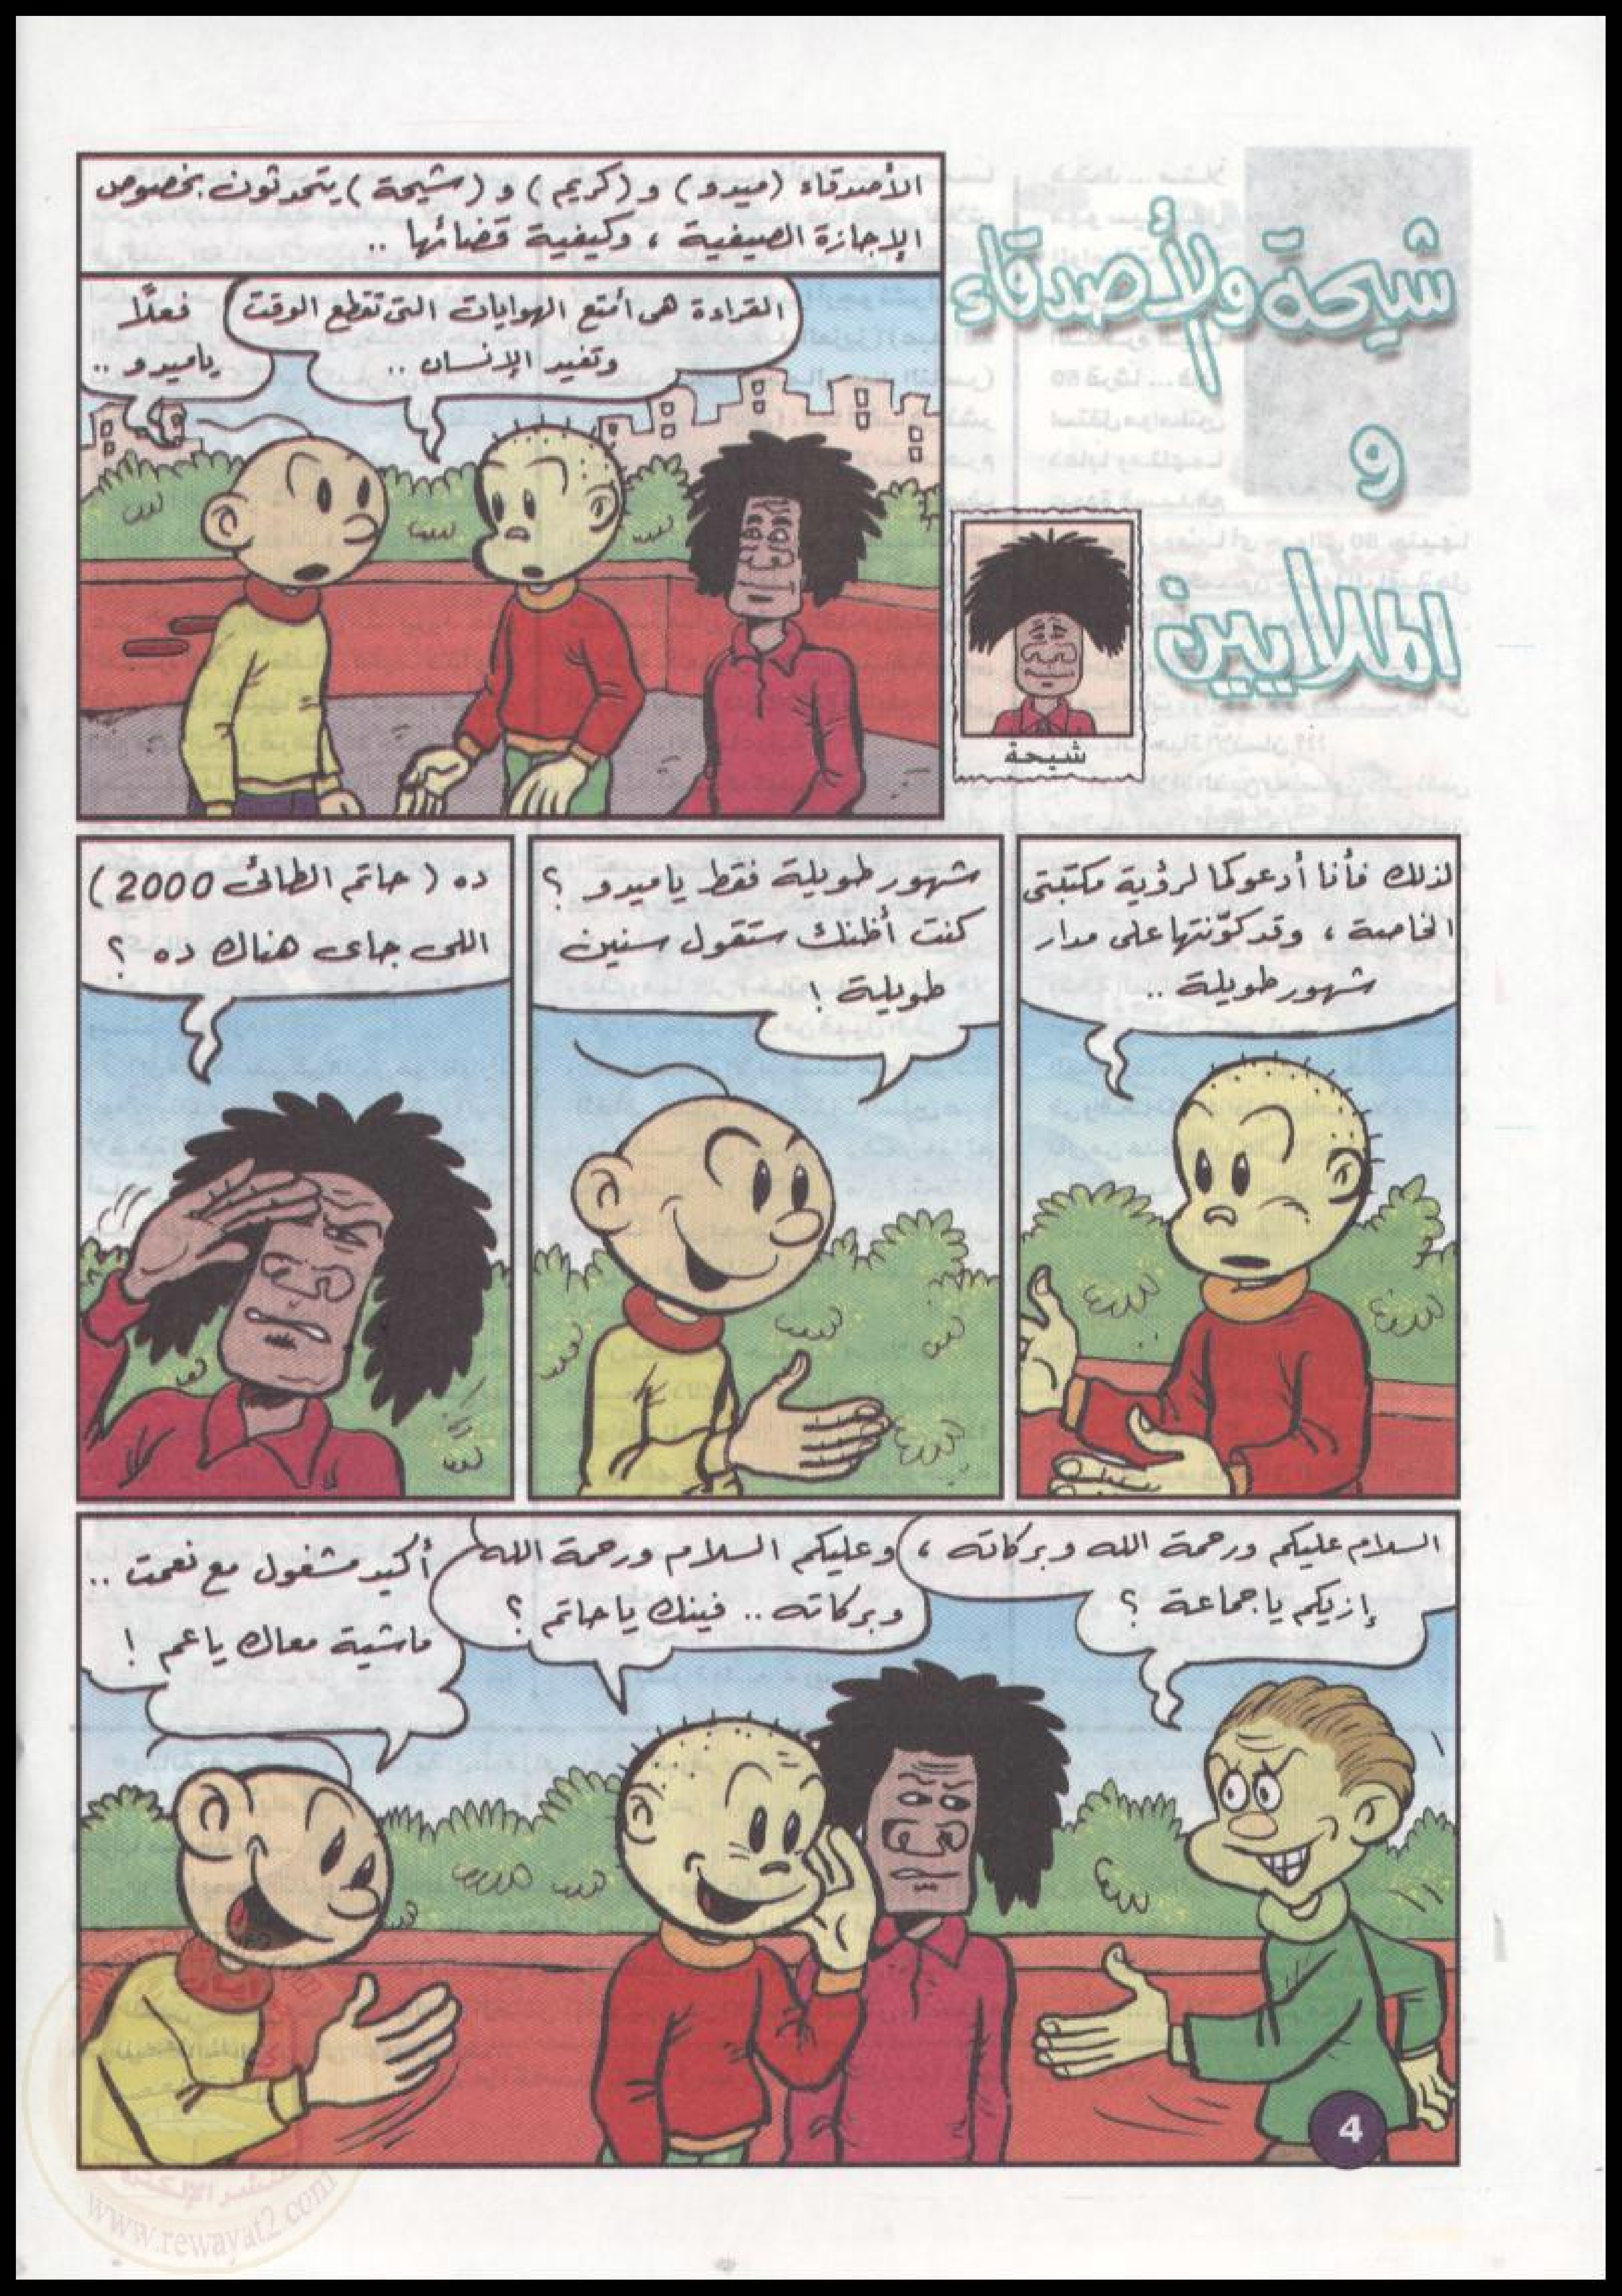 شيحة والأصدقاء
و
الملايين
شيحة
الأصدقاء (ميدو) و (كريم) و (شيحة) يتحدثون بخصوص
الإجازة الصيفية ، وكيفية قضائها ..
القراءة هى أمتع الهوايات التى تقطع الوقت
وتفيد الإنسان ..
فعلًا
ياميدو ..
لذلك فأنا أدعوكما لرؤية مكتبتى
الخاصة ، وقد كوّنتها على مدار
شهور طويلة ..
شهور طويلة فقط ياميدو ؟
كنت أظنك ستقول سنين
طويلة !
ده ( حاتم الطائى 2000 )
اللى جاى هناك ده ؟
السلام عليكم ورحمة الله وبركاته ،
إزيكم ياجماعة ؟
وعليكم السلام ورحمة الله
وبركاته .. فينك ياحاتم ؟
أكيد مشغول مع نعمت ..
ماشية معاك ياعم !
4
www.rewayat2.com